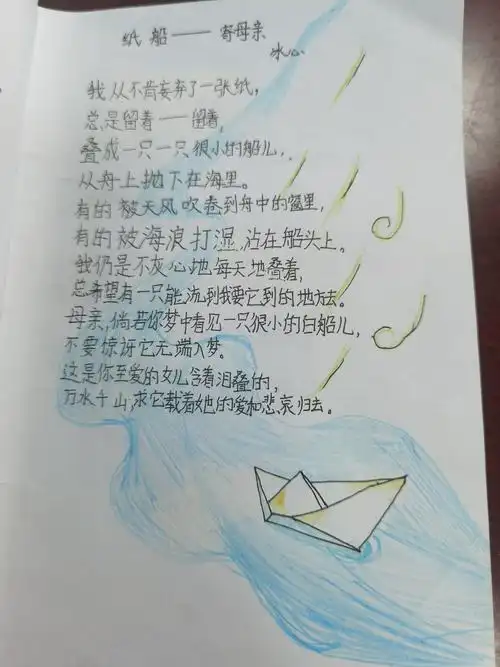 纸船——寄母亲
冰心
我从不肯妄弃了一张纸，
总是留着——留着，
叠成一只一只很小的船儿，
从舟上抛下在海里。
有的被天风吹卷到舟中的窗里，
有的被海浪打湿，沾在船头上。
我仍是不灰心地每天地叠着，
总希望有一只能流到我要它到的地方去。
母亲，倘若你梦中看见一只很小的白船儿，
不要惊讶它无端入梦。
这是你至爱的女儿含着泪叠的，
万水千山，求它载着她的爱和悲哀归去。